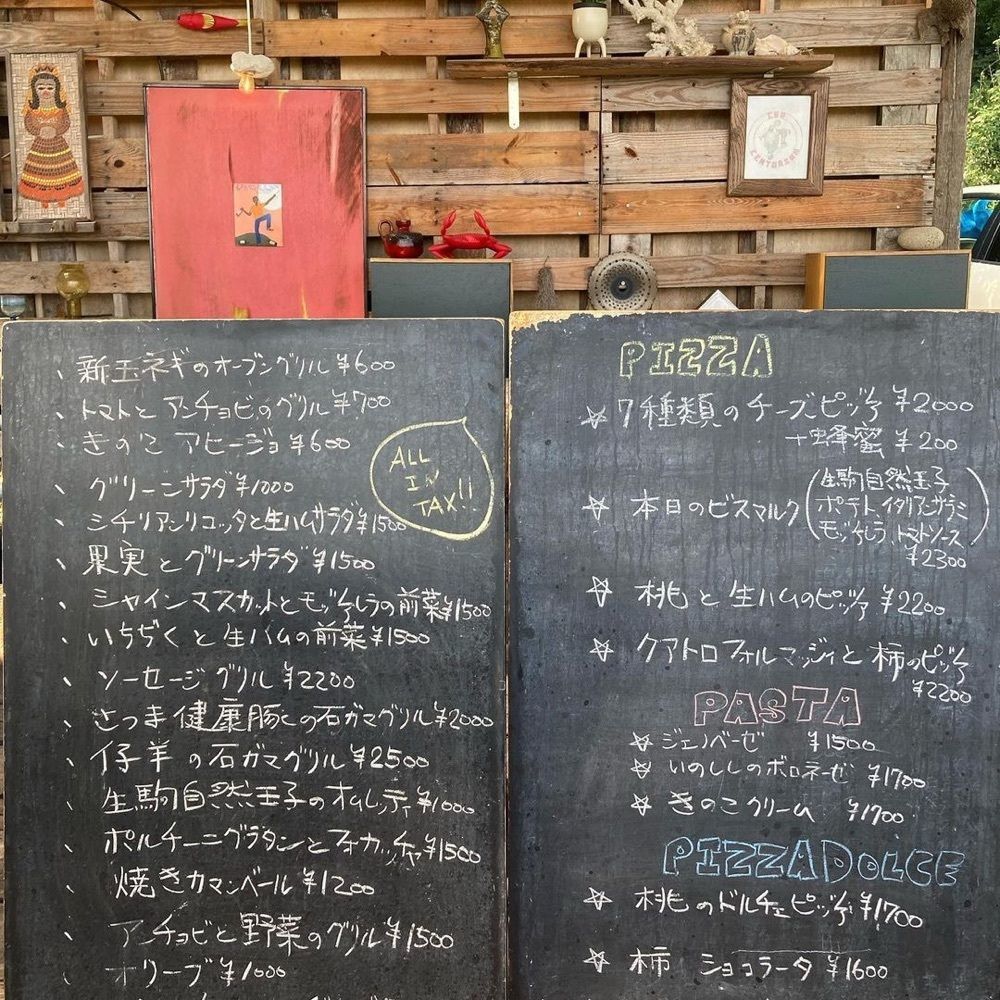 、新玉ネギのオーブングリル ¥600
、トマトとアンチョビのグリル ¥700
、きのこ アヒージョ ¥600
、グリーンサラダ ¥1000
、シチリアンリコッタと生ハムサラダ ¥1500
、果実とグリーンサラダ ¥1500
、シャインマスカットとモッツァレラの前菜 ¥1500
、いちぢくと生ハムの前菜 ¥1500
、ソーセージグリル ¥2200
、さつま健康豚の石ガマグリル ¥2000
、仔羊の石ガマグリル ¥2500
、生駒自然玉子のオムレッテ ¥1000
、ポルチーニグラタンとフォカッチャ ¥1500
、焼きカマンベール ¥1200
、アンチョビと野菜のグリル ¥1500
、オリーブ ¥1000
ALL
IN
TAX!!
PIZZA
☆ 7種類のチーズピッツァ ¥2000
+蜂蜜 ¥200
☆ 本日のビスマルク (生駒自然玉子
ポテト、イタリアンサラミ
モッツァレラ、トマトソース)
¥2300
☆ 桃と生ハムのピッツァ ¥2200
☆ クアトロフォルマッジィと柿のピッツァ
¥2200
PASTA
☆ ジェノベーゼ ¥1500
☆ いのししのボロネーゼ ¥1700
☆ きのこクリーム ¥1700
PIZZA DOLCE
☆ 桃のドルチェピッツァ ¥1700
☆ 柿 ショコラータ ¥1600